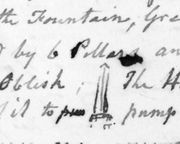 the Fountain, Gre
by 6 Pillars and
Oblisk; The H
of it to pump
ST.